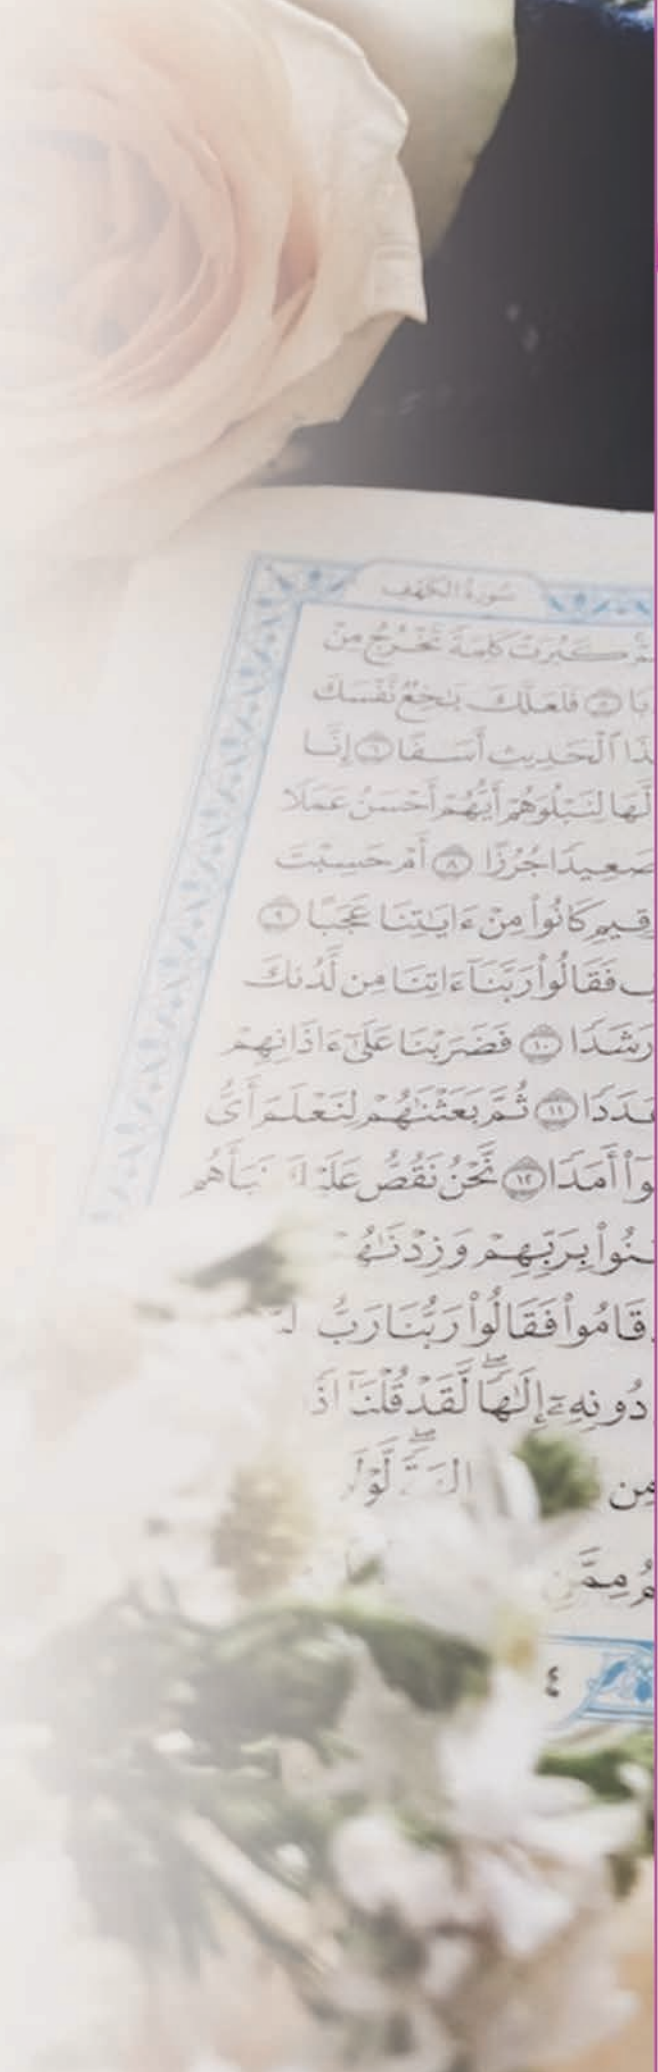 سُورَةُ الكَهْفِ
كَبُرَتْ كَلِمَةً تَخْرُجُ مِنْ
فَلَعَلَّكَ بَٰخِعٌ نَّفْسَكَ
ٱلْحَدِيثِ أَسَفًا ٦ إِنَّا
لَّهَا لِنَبْلُوَهُمْ أَيُّهُمْ أَحْسَنُ عَمَلًا
صَعِيدًا جُرُزًا ٨ أَمْ حَسِبْتَ
كَانُوا۟ مِنْ ءَايَٰتِنَا عَجَبًا ٩
فَقَالُوا۟ رَبَّنَآ ءَاتِنَا مِن لَّدُنكَ
رَشَدًا ١٠ فَضَرَبْنَا عَلَىٰٓ ءَاذَانِهِمْ
عَدَدًا ١١ ثُمَّ بَعَثْنَٰهُمْ لِنَعْلَمَ أَىُّ
أَمَدًا ١٢ نَّحْنُ نَقُصُّ عَلَيْكَ نَبَأَهُم
بِرَبِّهِمْ وَزِدْنَٰهُمْ
قَامُوا۟ فَقَالُوا۟ رَبُّنَا رَبُّ
دُونِهِۦٓ إِلَٰهًا ۖ لَّقَدْ قُلْنَآ إِذًا
مِن
مِمَّنِ
٤